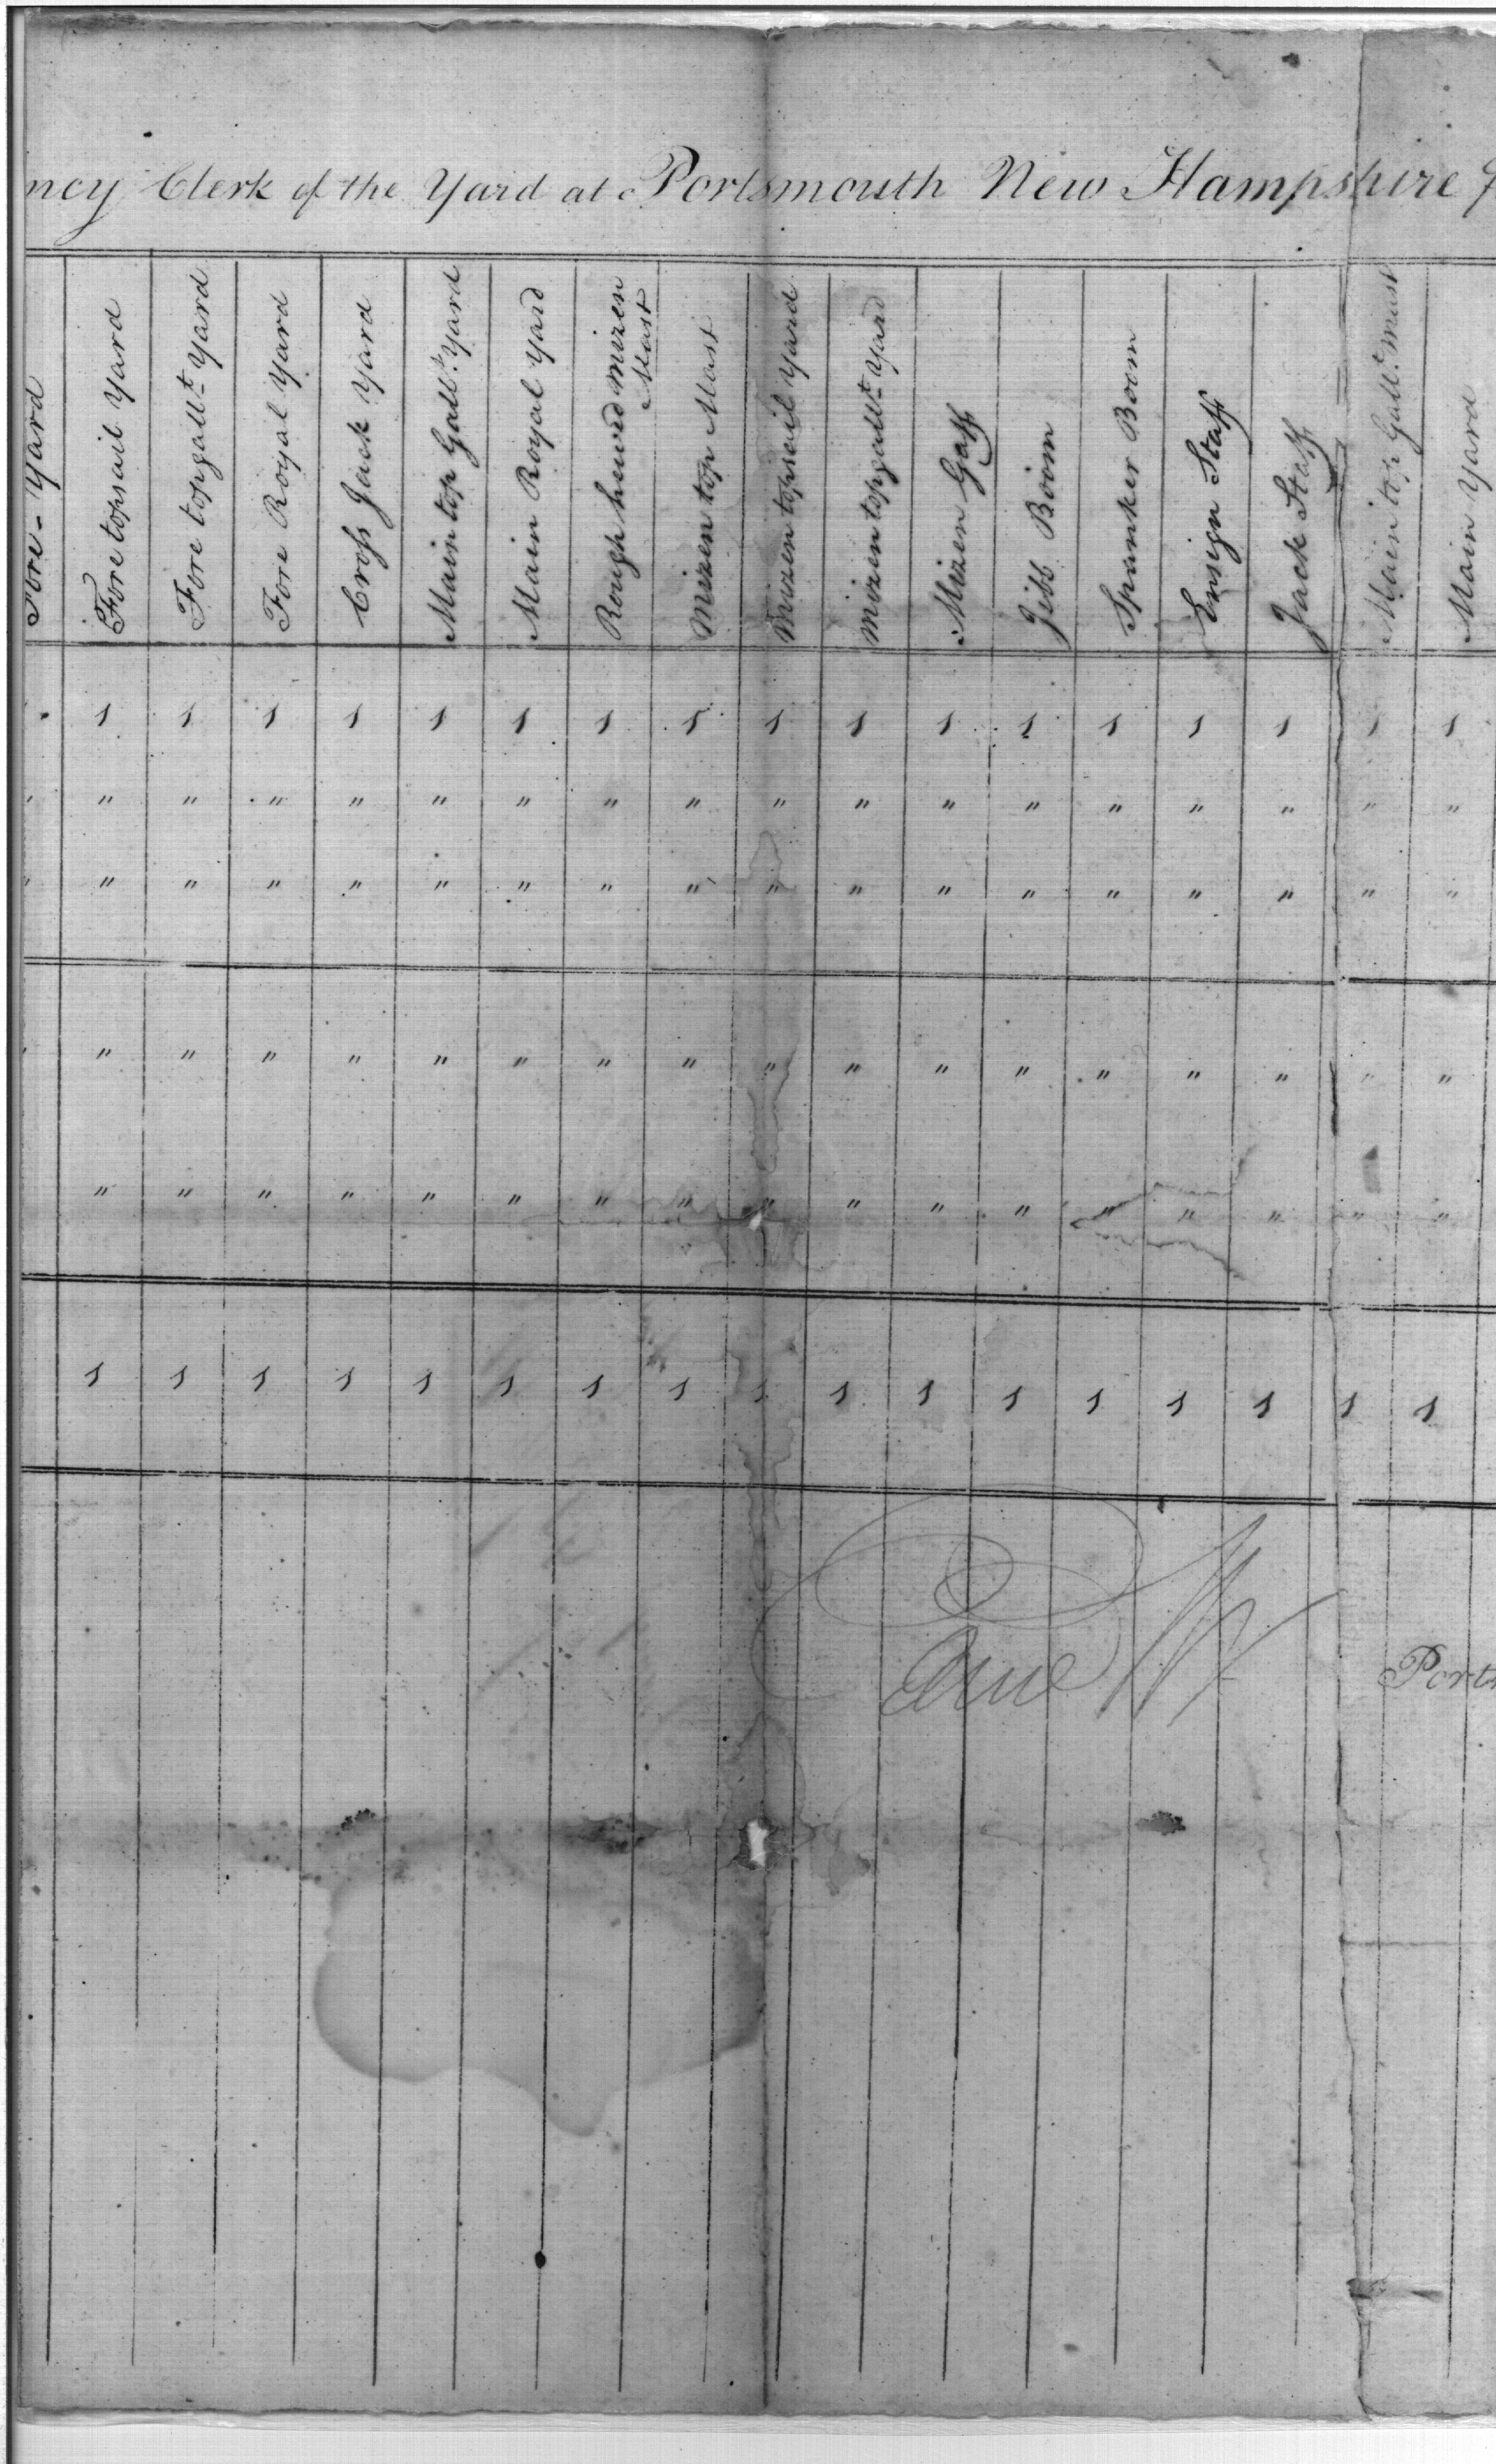 ncy Clerk of the Yard at Portsmouth New Hampshire
Fore-Yard
Fore topsail Yard
Fore topgallt Yard
Fore Royal Yard
Cross Jack Yard
Main top Gallt. Yard
Main Royal Yard
Rough hewed Mizen
Mast
Mizen top Mast
Mizen topsail Yard
Mizen topgallt Yard
Mizen Gaff
Jibb Boom
Spanker Boom
Ensign Staff
Jack Staff
Main top Gallt. Mast
Main Yard
1 1 1 1 1 1 1 1 1 1 1 1 1 1 1 1 1
" " " " " " " " " " " " " " " " " "
" " " " " " " " " " " " " " " " " "
" " " " " " " " " " " " " " " " "
" " " " " " " " " " " " " " " " "
1 1 1 1 1 1 1 1 1 1 1 1 1 1 1 1 1
Ports